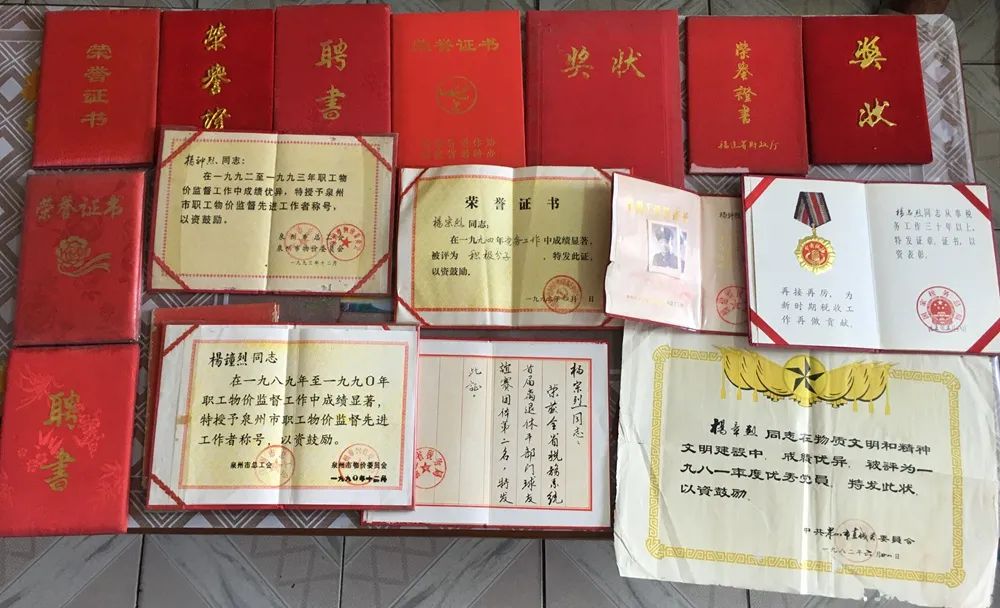 荣誉证书
荣誉证
聘书
荣誉证书
奖状
荣誉證書
福建省财政厅
奖状
荣誉证书
聘书
同志:
在一九九二至一九九三年职工物
价监督工作中成绩优异,特授予泉州
市职工物价监督先进工作者称号,
以资鼓励。
泉州市总工会
泉州市物价委员会
一九九三年十二月
荣誉证书
杨宗烈同志:
在一九九四年党务工作中成绩显著,
被评为积极分子,特发此证,
以资鼓励。
杨志烈同志从事税
务工作三十年以上,
特发证章、证书,以
资表彰。
再接再厉,为
新时期税收工
作再做贡献。
国家税务局
杨 烈同志
在一九八九年至一九九〇年
职工物价监督工作中成绩显著,
特授予泉州市职工物价监督先进
工作者称号,以资鼓励。
泉州市总工会
泉州市物价委员会
一九九〇年十二月
杨宗烈同志:
荣获全省税务系统
首届离退休干部门球友
谊赛团体第二名,特发
此证。
杨章烈同志在物质文明和精神
文明建设中,成绩优异,被评为一
九八一年度优秀党员,特发此状,
以资鼓励。
中共泉州市 委员会
一九八二年六月 日